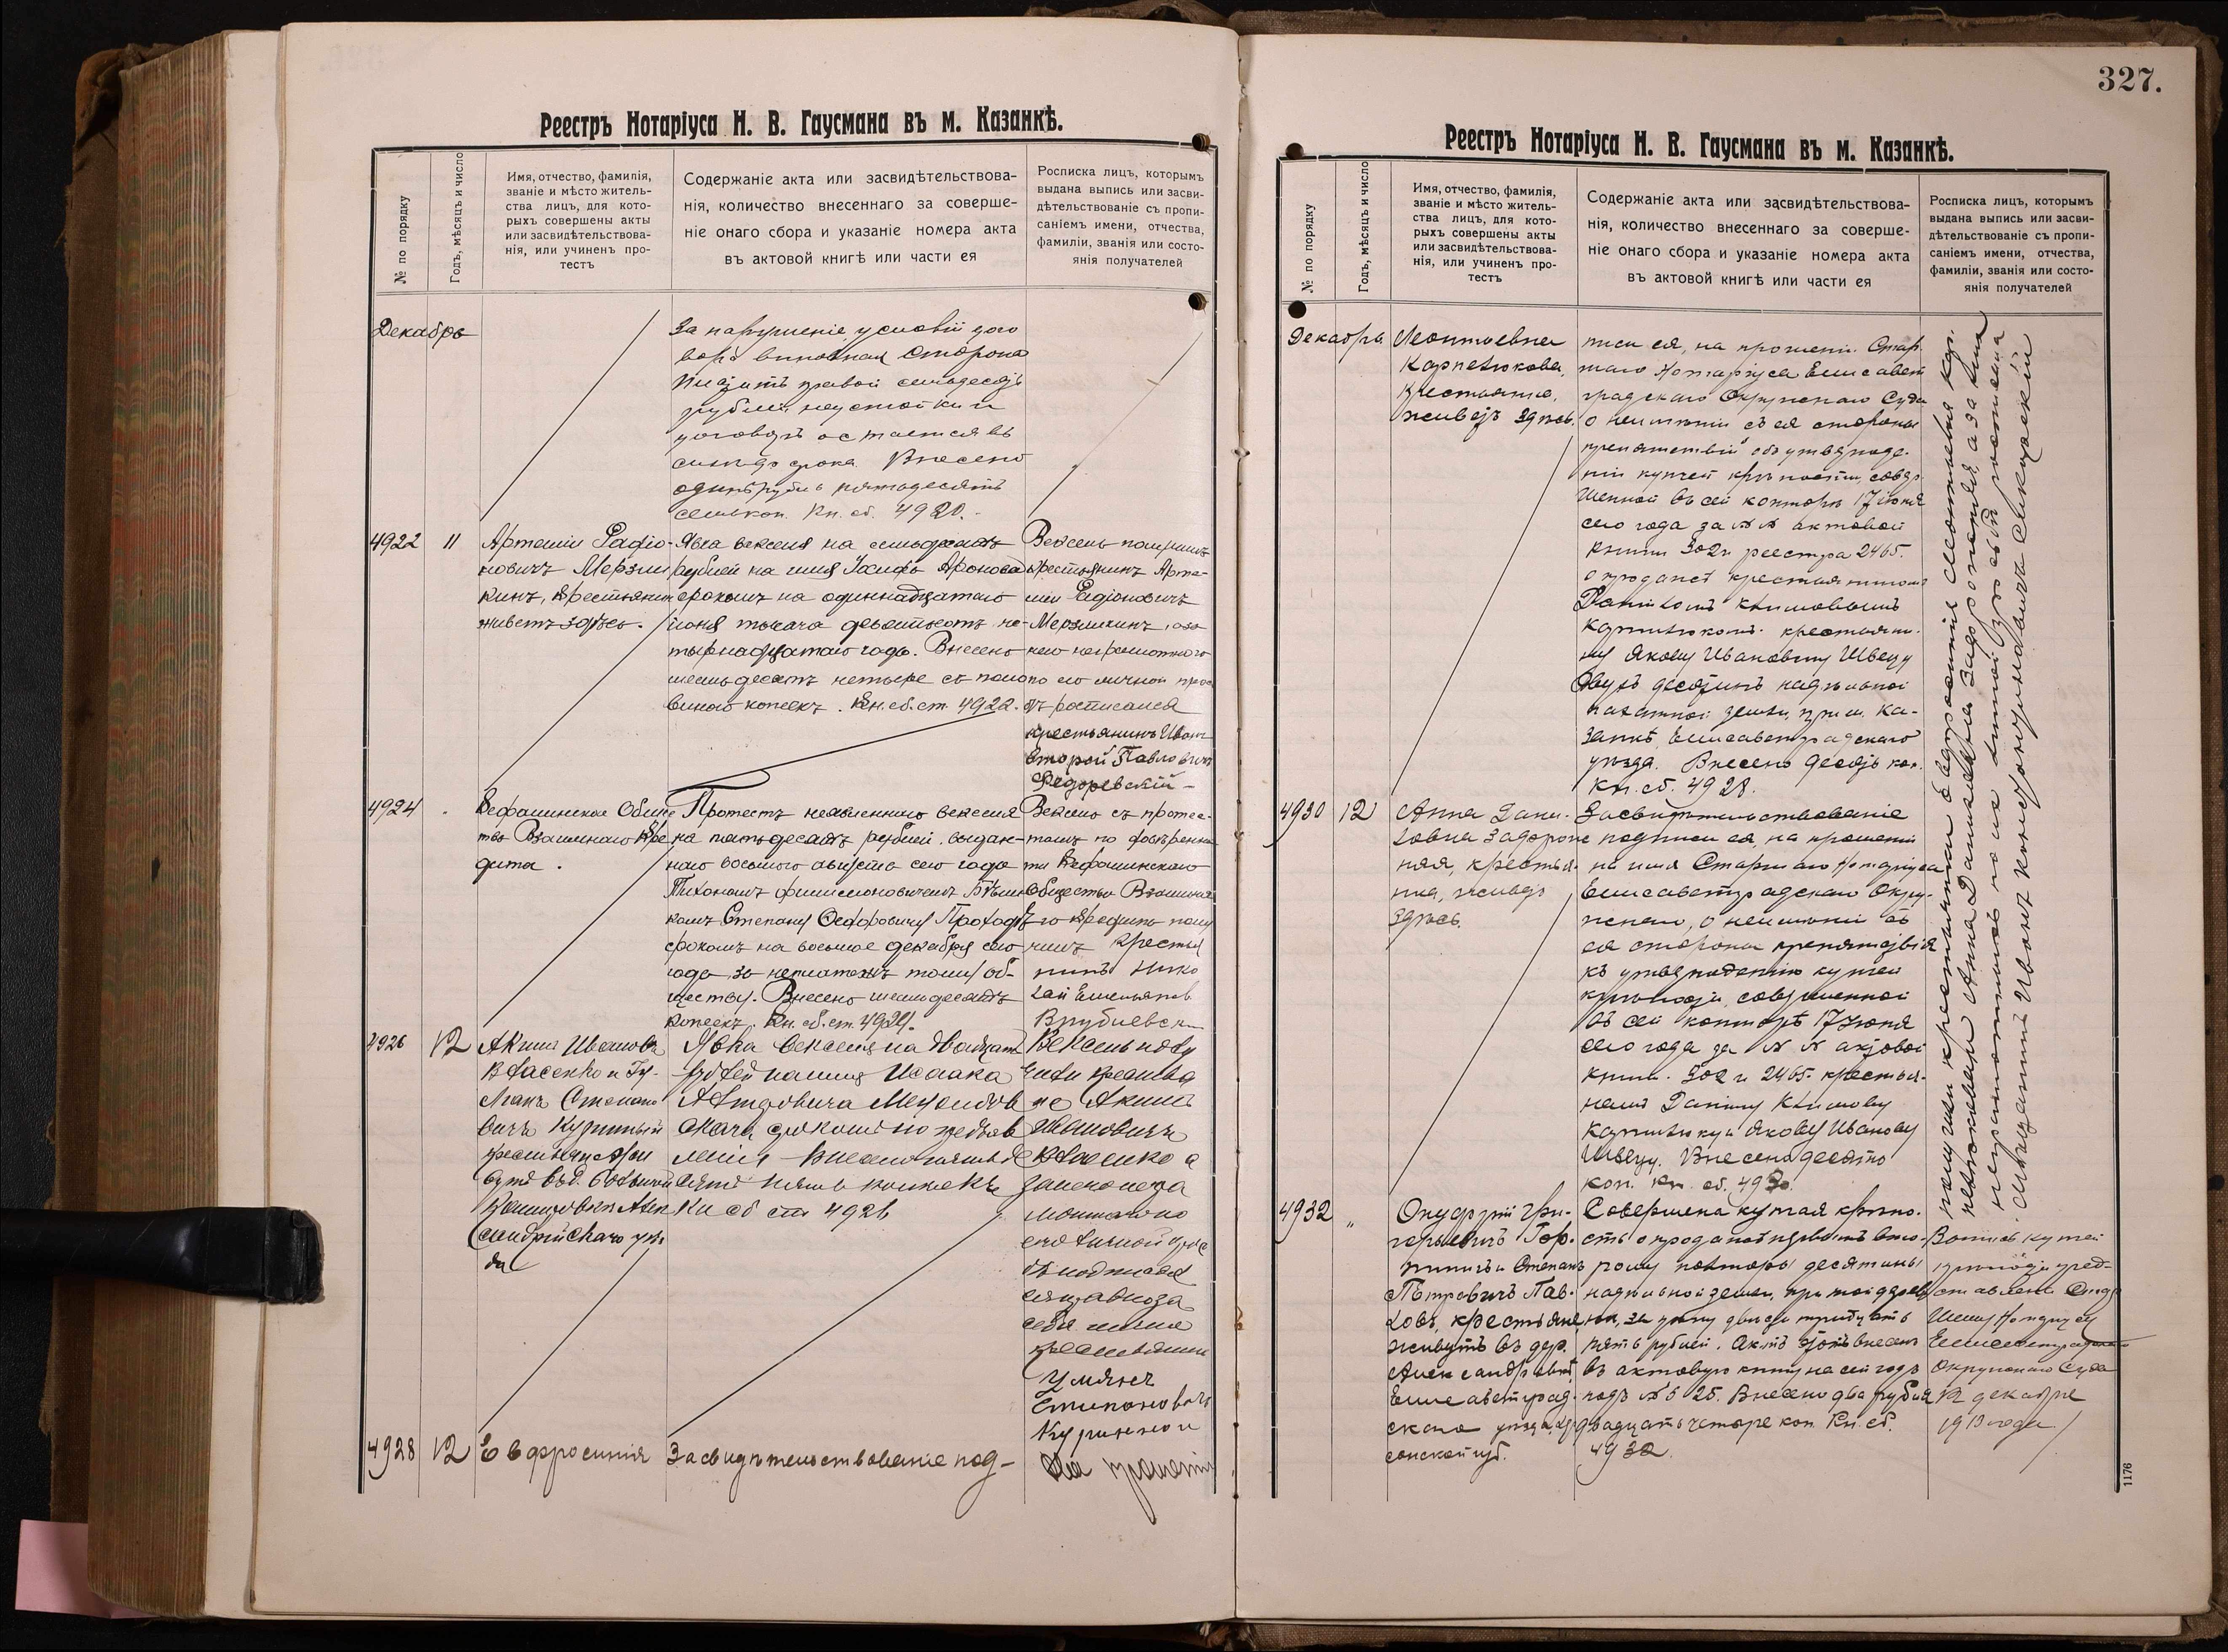 Реестръ Нотаріуса Н. В. Гаусмана въ м. Казанкѣ.
№ по порядку
Годъ, мѣсяцъ и число
Имя, отчество, фамилія,
званіе и мѣсто житель-
ства лицъ, для кото-
рыхъ совершены акты
или засвидѣтельствова-
нія, или учиненъ про-
тестъ
Содержаніе акта или засвидѣтельствова-
нія, количество внесеннаго за соверше-
ніе онаго сбора и указаніе номера акта
въ актовой книгѣ или части ея
Росписка лицъ, которымъ
выдана выпись или засви-
дѣтельствованіе съ пропи-
саніемъ имени, отчества,
фамиліи, званія или состо-
янія получателей
Декабрь
За нарушеніе условій дого
вора виновная сторона
платитъ правой семьдесятъ
рублей неустойки и
договоръ остается въ
силѣ до срока. Внесено
одинъ рубль пятьдесятъ
семь коп. Кн. сб. 4920.
4922
11
Артемій Радіо-
новичъ Мерзли
кинъ, крестьянинъ
живетъ здѣсь.
Явка векселя на семьдесятъ
рублей на имя Іосифа Аронова
срокомъ на одиннадцатаго
іюня тысяча девятьсотъ че-
тырнадцатаго года. Внесено
шестьдесятъ четыре съ поло
виною копеекъ. Кн. сб. ст. 4922.
Вексель получилъ
крестьянинъ Арте-
мій Радіоновичъ
Мерзликинъ, а за
него неграмотного
по его личной прось
бѣ росписался
крестьянинъ Иванъ
второй Павловичъ
Федоревскій
4924
Общес
тво Взаимнаго Кре
дита.
Протестъ неявленнаго векселя
на пятьдесятъ рублей, выдан-
наго восьмого августа сего года
Тихономъ Филимоновичемъ
комъ Степану Федоровичу
срокомъ на восьмое декабря сего
года, за неплатежъ тому об-
ществу. Внесено шестьдесятъ
копеекъ. Кн. сб. ст. 4924.
Вексель съ протес-
томъ по довѣренно
сти
Общества Взаимна
го Кредита полу
чилъ крестья
нинъ Нико
лай Емельянов
Врублевск
4926
12
Акимъ Иванов
Власенко и Ум
Степано
вичъ Куринный
крестьяне
Александрійскаго уѣз
да
Явка векселя на двадцать
рублей на имя Исаака
срокомъ по предъяв
ленія Внесено пятьде
сятъ пять копѣекъ
Кн сб ст 4926
Вексель полу
чилъ крестья
не Акимъ
Ивановичъ
Власенко а
за него негра
мотнаго по
его личной прос
бѣ подписал
ся равно за
себя лично
крестьянинъ
Степановичъ
Куринной
4928
12
Евфросинія
Засвидѣтельствованіе под-
На прошеніи
327.
Реестръ Нотаріуса Н. В. Гаусмана въ м. Казанкѣ.
№ по порядку
Годъ, мѣсяцъ и число
Имя, отчество, фамилія,
званіе и мѣсто житель-
ства лицъ, для кото-
рыхъ совершены акты
или засвидѣтельствова-
нія, или учиненъ про-
тестъ
Содержаніе акта или засвидѣтельствова-
нія, количество внесеннаго за соверше-
ніе онаго сбора и указаніе номера акта
въ актовой книгѣ или части ея
Росписка лицъ, которымъ
выдана выпись или засви-
дѣтельствованіе съ пропи-
саніемъ имени, отчества,
фамиліи, званія или состо-
янія получателей
Декабрь
Леонтьевна
Карпетюкова,
крестьянка,
живетъ здѣсь.
писи ея, на прошеніи Стар
шаго Нотаріуса Елисавет
градскаго Окружнаго Суда
о неимѣніи съ ея стороны
препятствій объ утвержде-
ніи купчей крѣпости, совер
шенной въ сей конторѣ 17 іюня
сего года за №№ актовой
книги 302 и реестра 2465.
о продажѣ крестьяниномъ
Даниломъ Климовымъ
крестьяни-
ну Якову Ивановичу Швецу
двухъ десятинъ надѣльной
пахатной земли, при м. Ка-
занкѣ Елисаветградскаго
уѣзда. Внесено десять коп.
Кн. сб. 4928.
получили крестьянки Евфросинія Леонтьева Кар-
петюкова и Анна Данилова Задорожняя, а за нихъ
неграмотныхъ по ихъ личной просьбѣ росписался
мѣщанинъ Иванъ Константиновичъ
4930
12
Анна Дани-
ловна Задорож
няя, крестьян
ка, живетъ
здѣсь.
Засвидѣтельствованіе
подписи ея, на прошеніи
на имя Старшаго Нотаріуса
Елисаветградскаго Окру-
жнаго, о неимѣніи съ
ея стороны препятствія
къ утвержденію купчей
крѣпости, совершенной
въ сей конторѣ 17 іюня
сего года за №№ актовой
книги 302 и 2465. крестья-
намъ Данилу Климову
и Якову Иванову
Швецу. Внесено десять
коп. Кн. сб. 4930.
4932
"
Онуфрій Гри-
горьевичъ Гор-
и Степанъ
Петровичъ Пав-
ловъ, крестьяне,
живутъ въ дер.
Александровкѣ,
Елисаветград-
скаго уѣзда, Хер
сонской губ.
Совершена купчая крѣпо-
сть о продажѣ первымъ вто-
рому полторы десятины
надѣльной земли, при той дерев
нѣ, за цѣну двѣсти тридцать
пять рублей. Актъ этотъ внесенъ
въ актовую книгу на сей годъ
подъ № 525. Внесено два рубля
двадцать четыре коп. Кн. сб.
4932.
Выпись купчей
крѣпости пред-
ставлена Стар
шему Нотаріусу
Елисаветградскаго
Окружнаго Суда
12 декабря
1913 года
1176